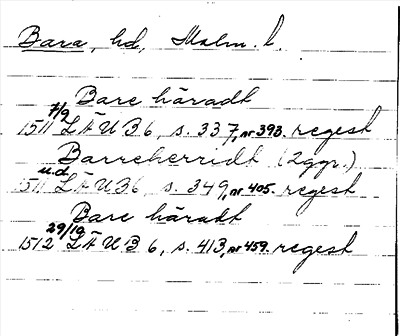 Bara, hd, Malm. l.
Bare häradt
7/9
1511 LÄUB 6, s. 337, nr 393. regest
Barreherridt (2 ggr.)
u.d.
1511 LÄUB 6, s. 349, nr 405. regest
Bare häradt
29/10
1512 LÄUB 6, s. 413, nr 459. regest